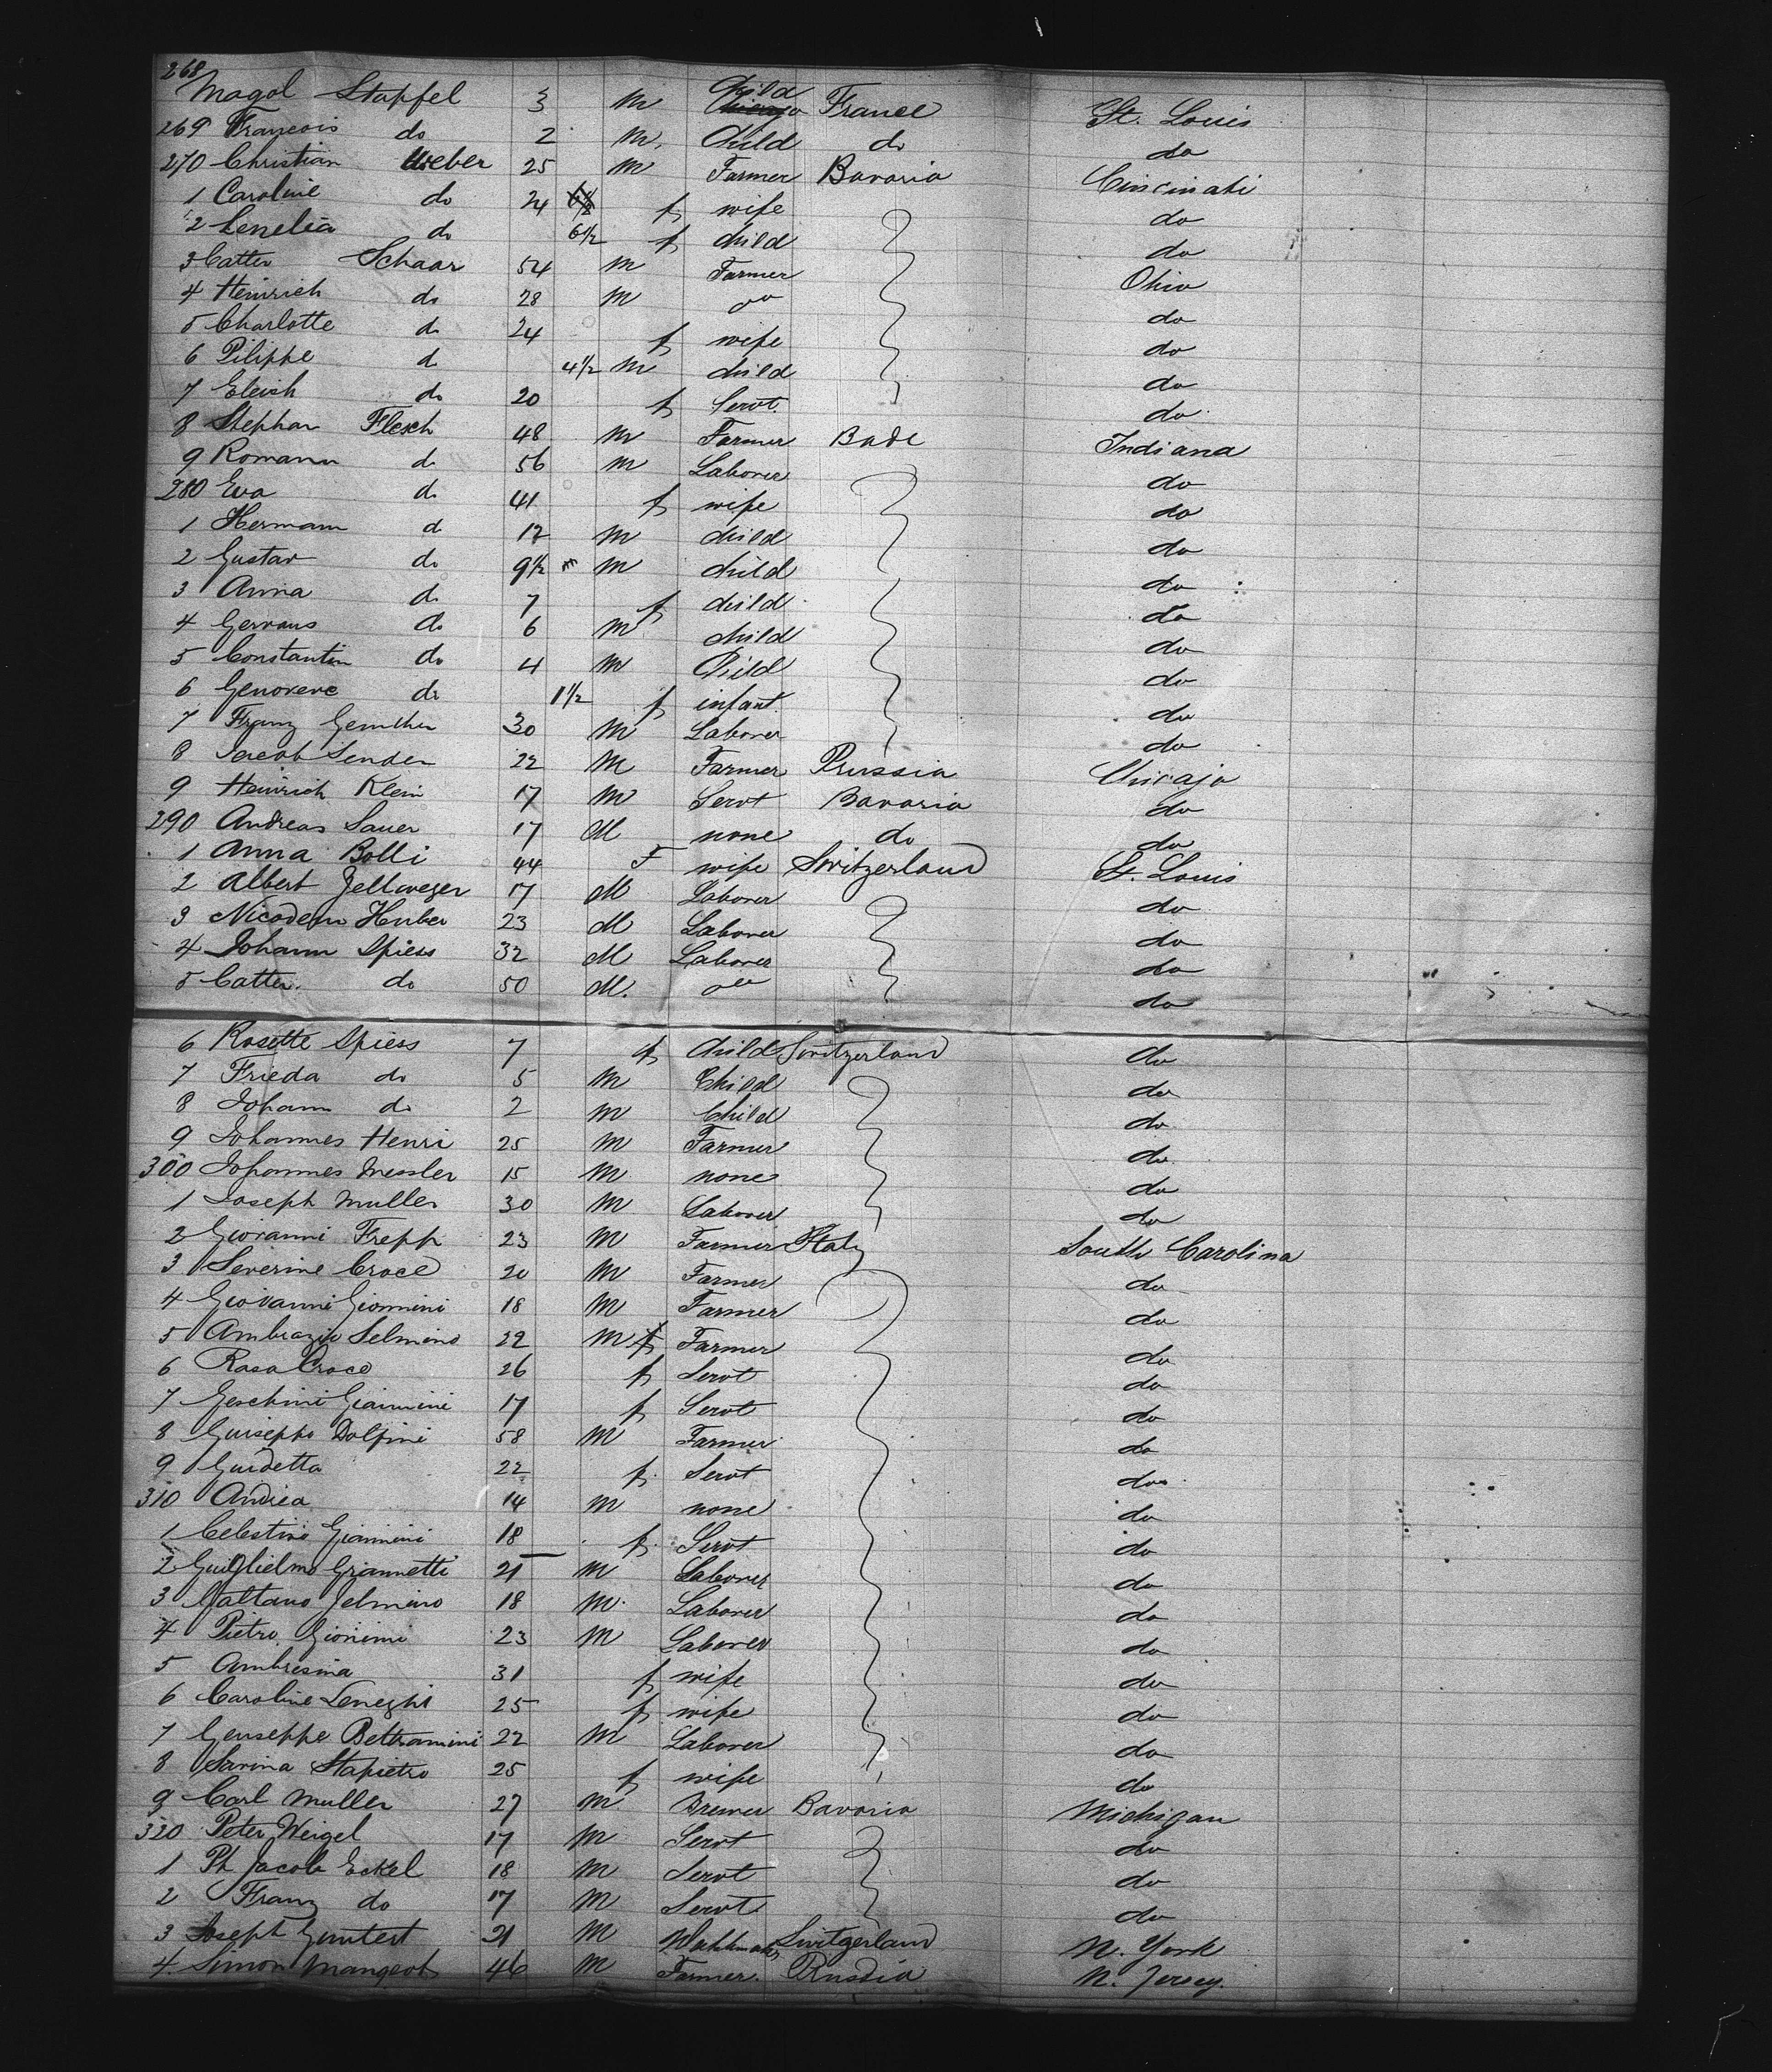 268 Magol Stapfel 3 m Child France St. Louis
269 Francois do 2 m. Child do do
270 Christian Weber 25 m Farmer Bavaria Cincinati
1 Caroline do 24 f wife do
2 do 6 1/2 f child do
3 Catter Schaar 54 m Farmer Ohio
4 Heinrich do 28 m do do
5 Charlotte do 24 f wife do
6 Pilippe d 4 1/2 m child do
7 do 20 f Servt. do
8 Stephan Flesch 48 m Farmer Bade Indiana
9 Romann d. 56 m Laborer do
280 Eva d. 41 f wife do
1 Hermann d 12 m child do
2 Gustav do 9 1/2 m child do
3 Anna d. 7 f child do
4 Gervaus do 6 m child do
5 Constantin do 4 m Child do
6 Genoveve do 1 1/2 f infant. do
7 Franz Genther 30 m Laborer do
8 Jacob Sender 22 m Farmer Prussia Chicajo
9 Heinrich Klein 17 m Servt Bavaria do
290 Andreas Sauer 17 M none do do
1 Anna Bolli 44 F wife Switzerland St. Louis
2 Albert Zellweger 17 M Laborer do
3 Nicodem Huber 23 M Laborer do
4 Johann Spiess 32 M Laborer do
5 Catter. do 50 M. do do
6 Rosette Spiess 7 f Child Switzerland do
7 Frieda do 5 m Child do
8 Johann do 2 m Child do
9 Johannes Henri 25 m Farmer do
300 Johannes Messler 15 m none do
1 Joseph Muller 30 m Laborer do
2 Giovanni Frepp 23 m Farmer Italy South Carolina
3 Severine Croce 20 m Farmer do
4 Giovanni Giomini 18 m Farmer do
5 Ambrazio Selmino 22 m Farmer do
6 Rosa Croce 26 f Servt do
7 Geschini Giannini 17 f Servt do
8 Guiseppe Dolfini 58 m Farmer do
9 Guidetta 22 f. Servt do
310 Andrea 14 m none do
1 Celestino Giannini 18 f. Servt do
2 Guiglielmo Griannetti 21 m Laborer do
3 Galtano Jelmino 18 m. Laborer do
4 Pietro Gionimi 23 m Laborer do
5 Ambresina 31 f wife do
6 Caroline Seneghi 25 f wife do
7 Geuseppe Beltramini 22 m Laborer do
8 Savina Stapietro 25 f wife do
9 Carl Muller 27 m Brewer Bavaria Michigan
320 Peter Weigel 17 m Servt do
1 Ph Jacob Eckel 18 m Servt do
2 Franz do 17 m Servt do
3 Joseph Guntert 21 m Switzerland N. York
4 Simon Mangeot 46 m Farmer. Russia N. Jersey.